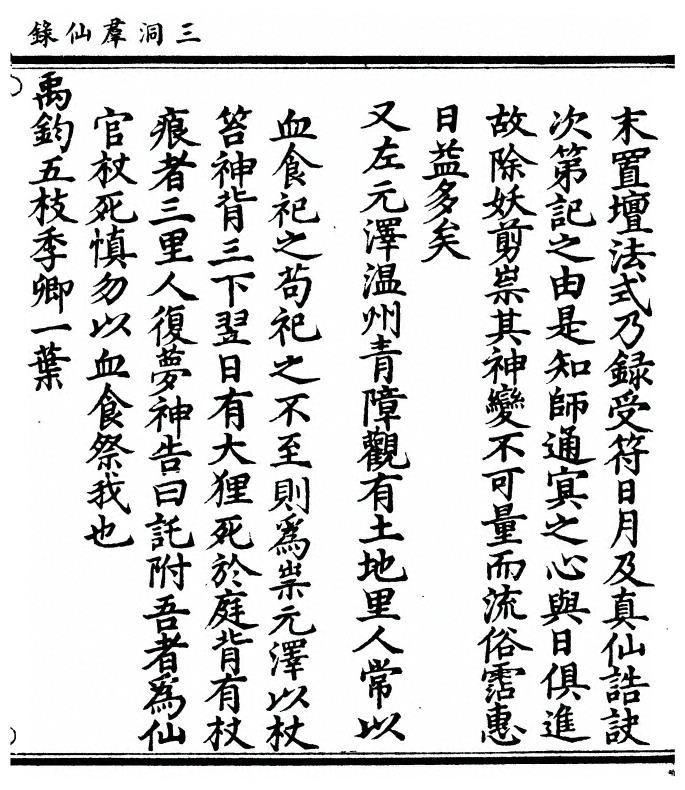 三洞羣仙錄
末置壇法式乃録受符日月及真仙誥訣
次第記之由是知師通冥之心與日俱進
故除妖剪祟其神變不可量而流俗霑惠
日益多矣
又左元澤温州青障觀有土地里人常以
血食祀之苟祀之不至則爲祟元澤以杖
笞神背三下翌日有大狸死於庭背有杖
痕者三里人復夢神告曰託附吾者爲仙
官杖死慎勿以血食祭我也
禹鈞五枝季卿一葉